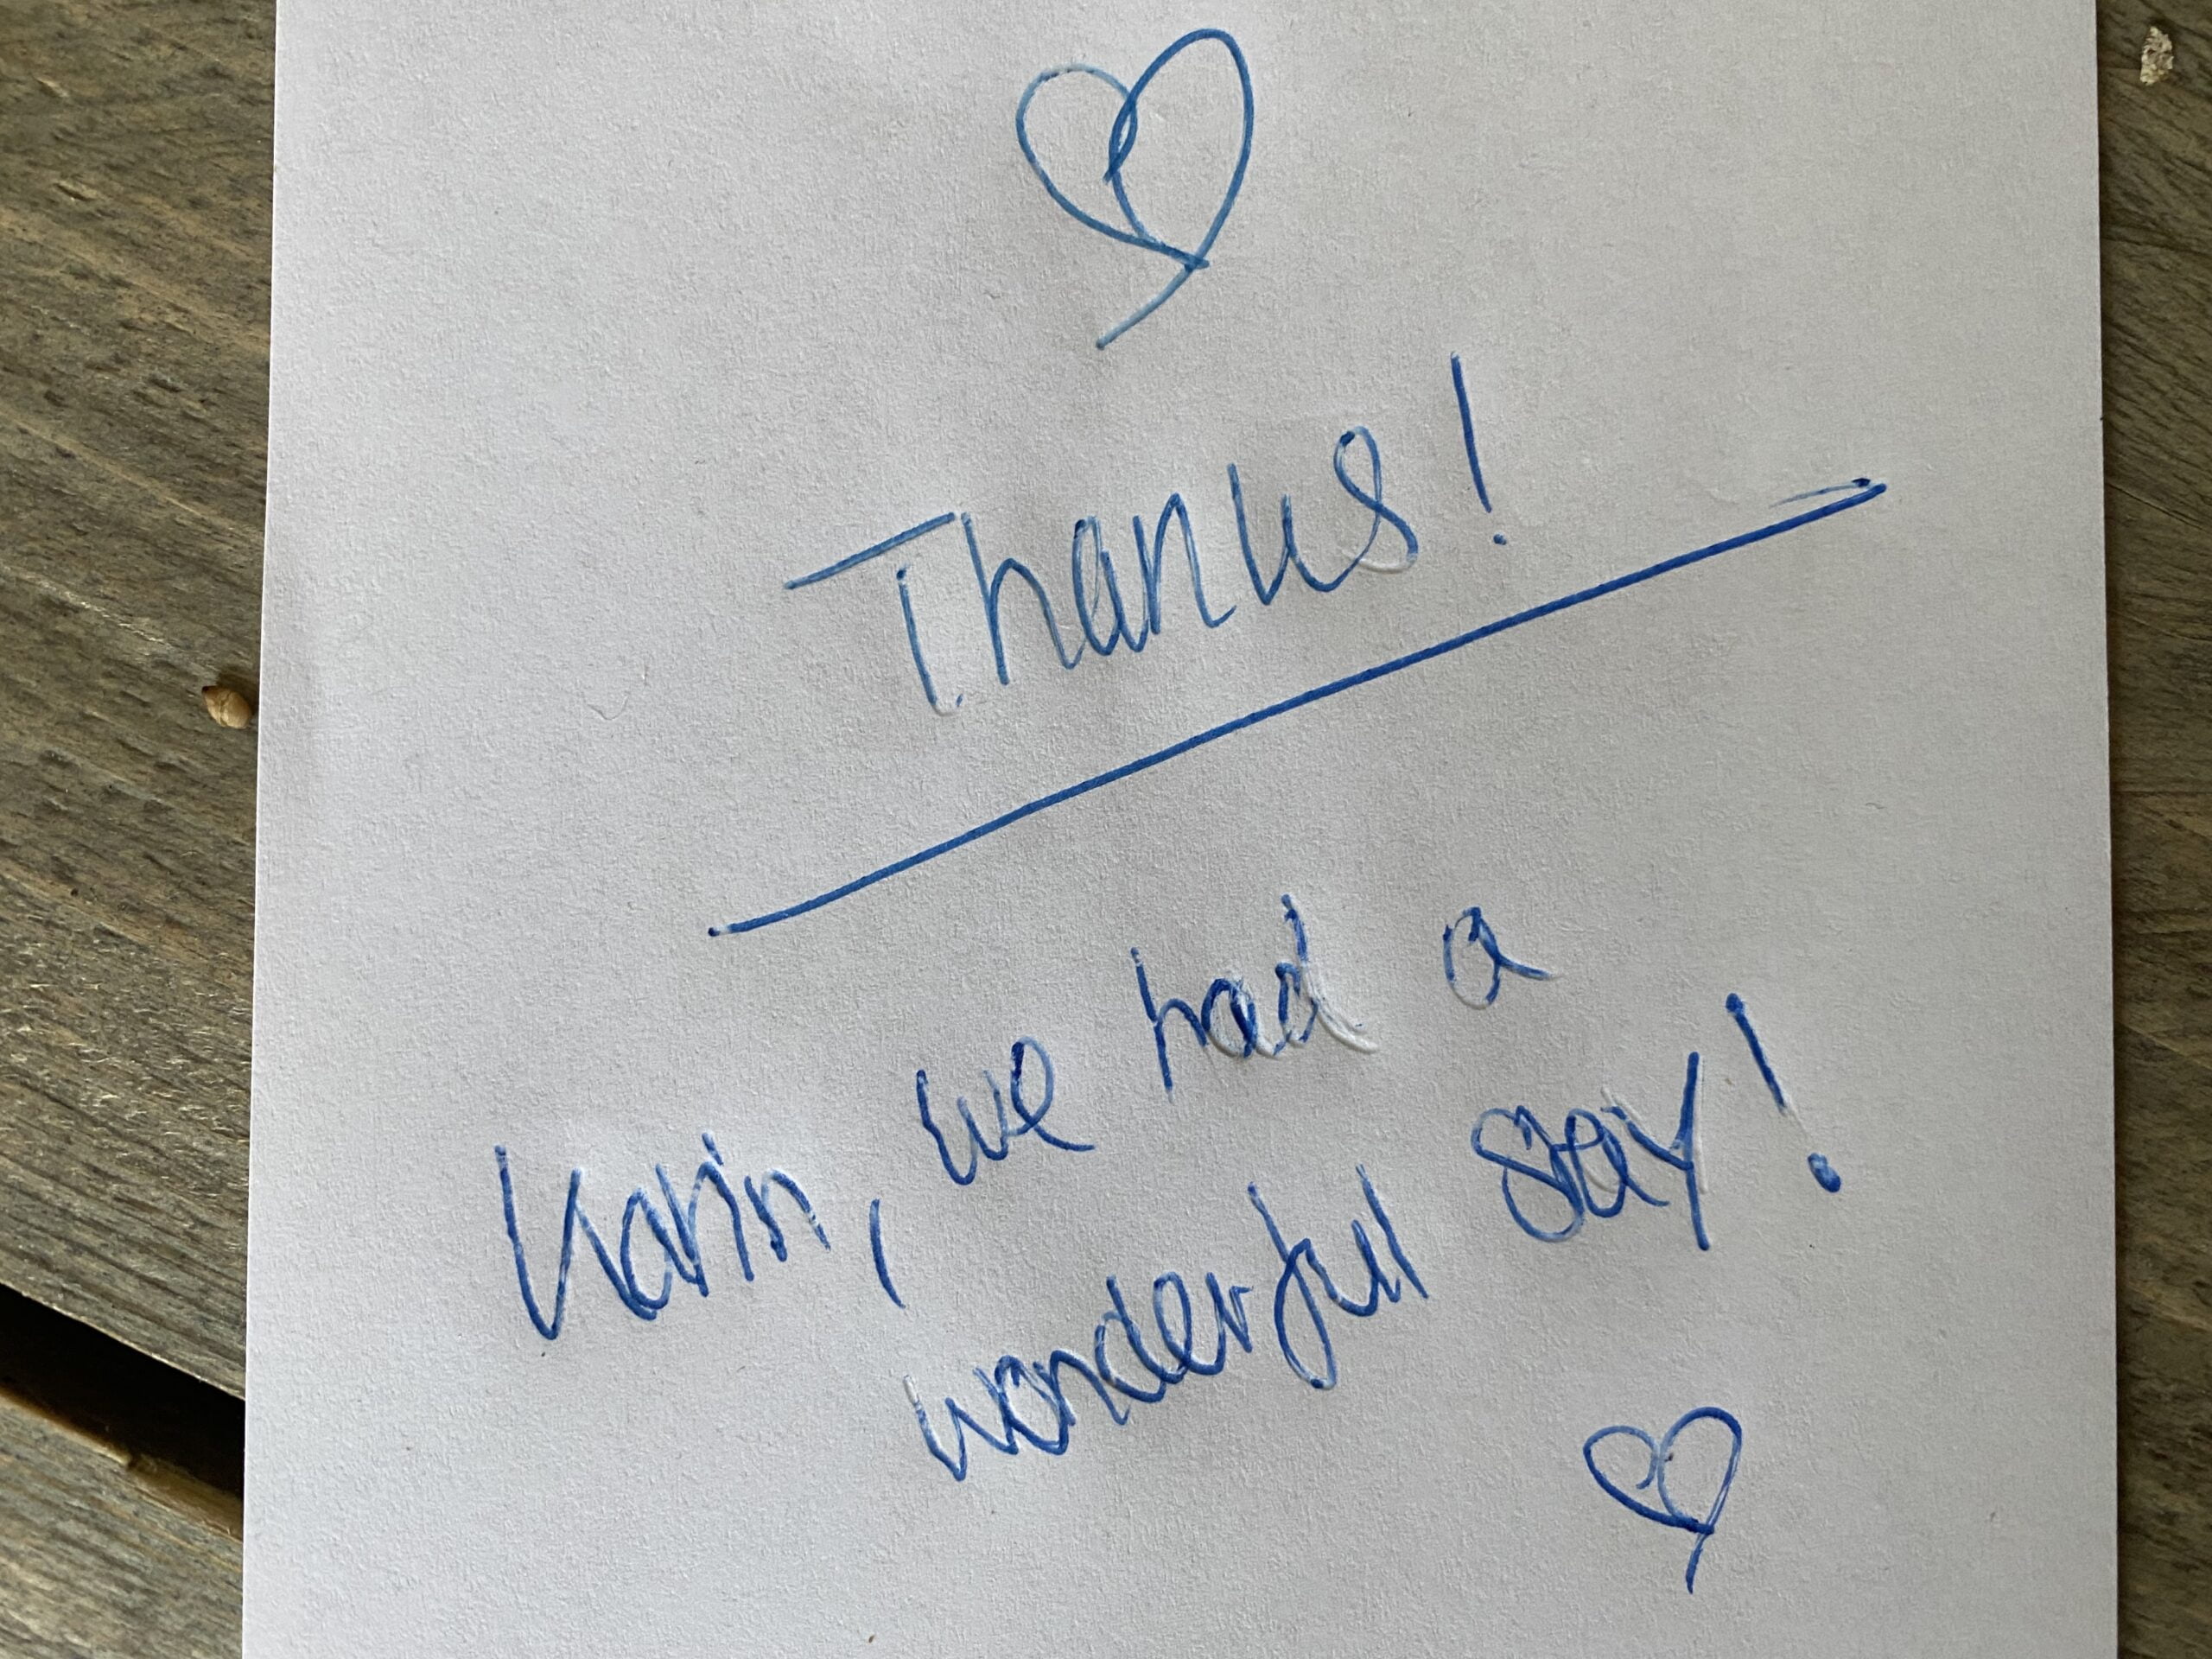 Thanks!
Karin, we had a
wonderfull stay!